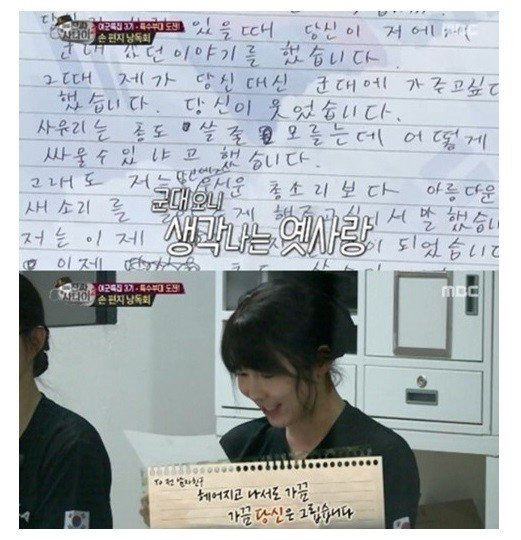 진짜 사나이
여군특집 3기 - 특수부대 도전!
손 편지 낭독회
MBC
있을때 당신이 저에게
군대 갔던 이야기를 했습니다.
그때 제가 당신 대신 군대에 가주고싶다
했습니다. 당신이 웃었습니다.
사유리는 총도 쏠 줄 모르는데 어떻게
싸울수 있냐고 했습니다.
그래도 저는 총소리보다 아름다운
새소리를 말했습니
저는 이제 되었습니다
이제
군대 오니
생각나는 옛사랑
진짜 사나이
여군특집 3기 - 특수부대 도전!
손 편지 낭독회
MBC
To 전 남자친구
헤어지고 나서도 가끔
가끔 당신은 그립습니다